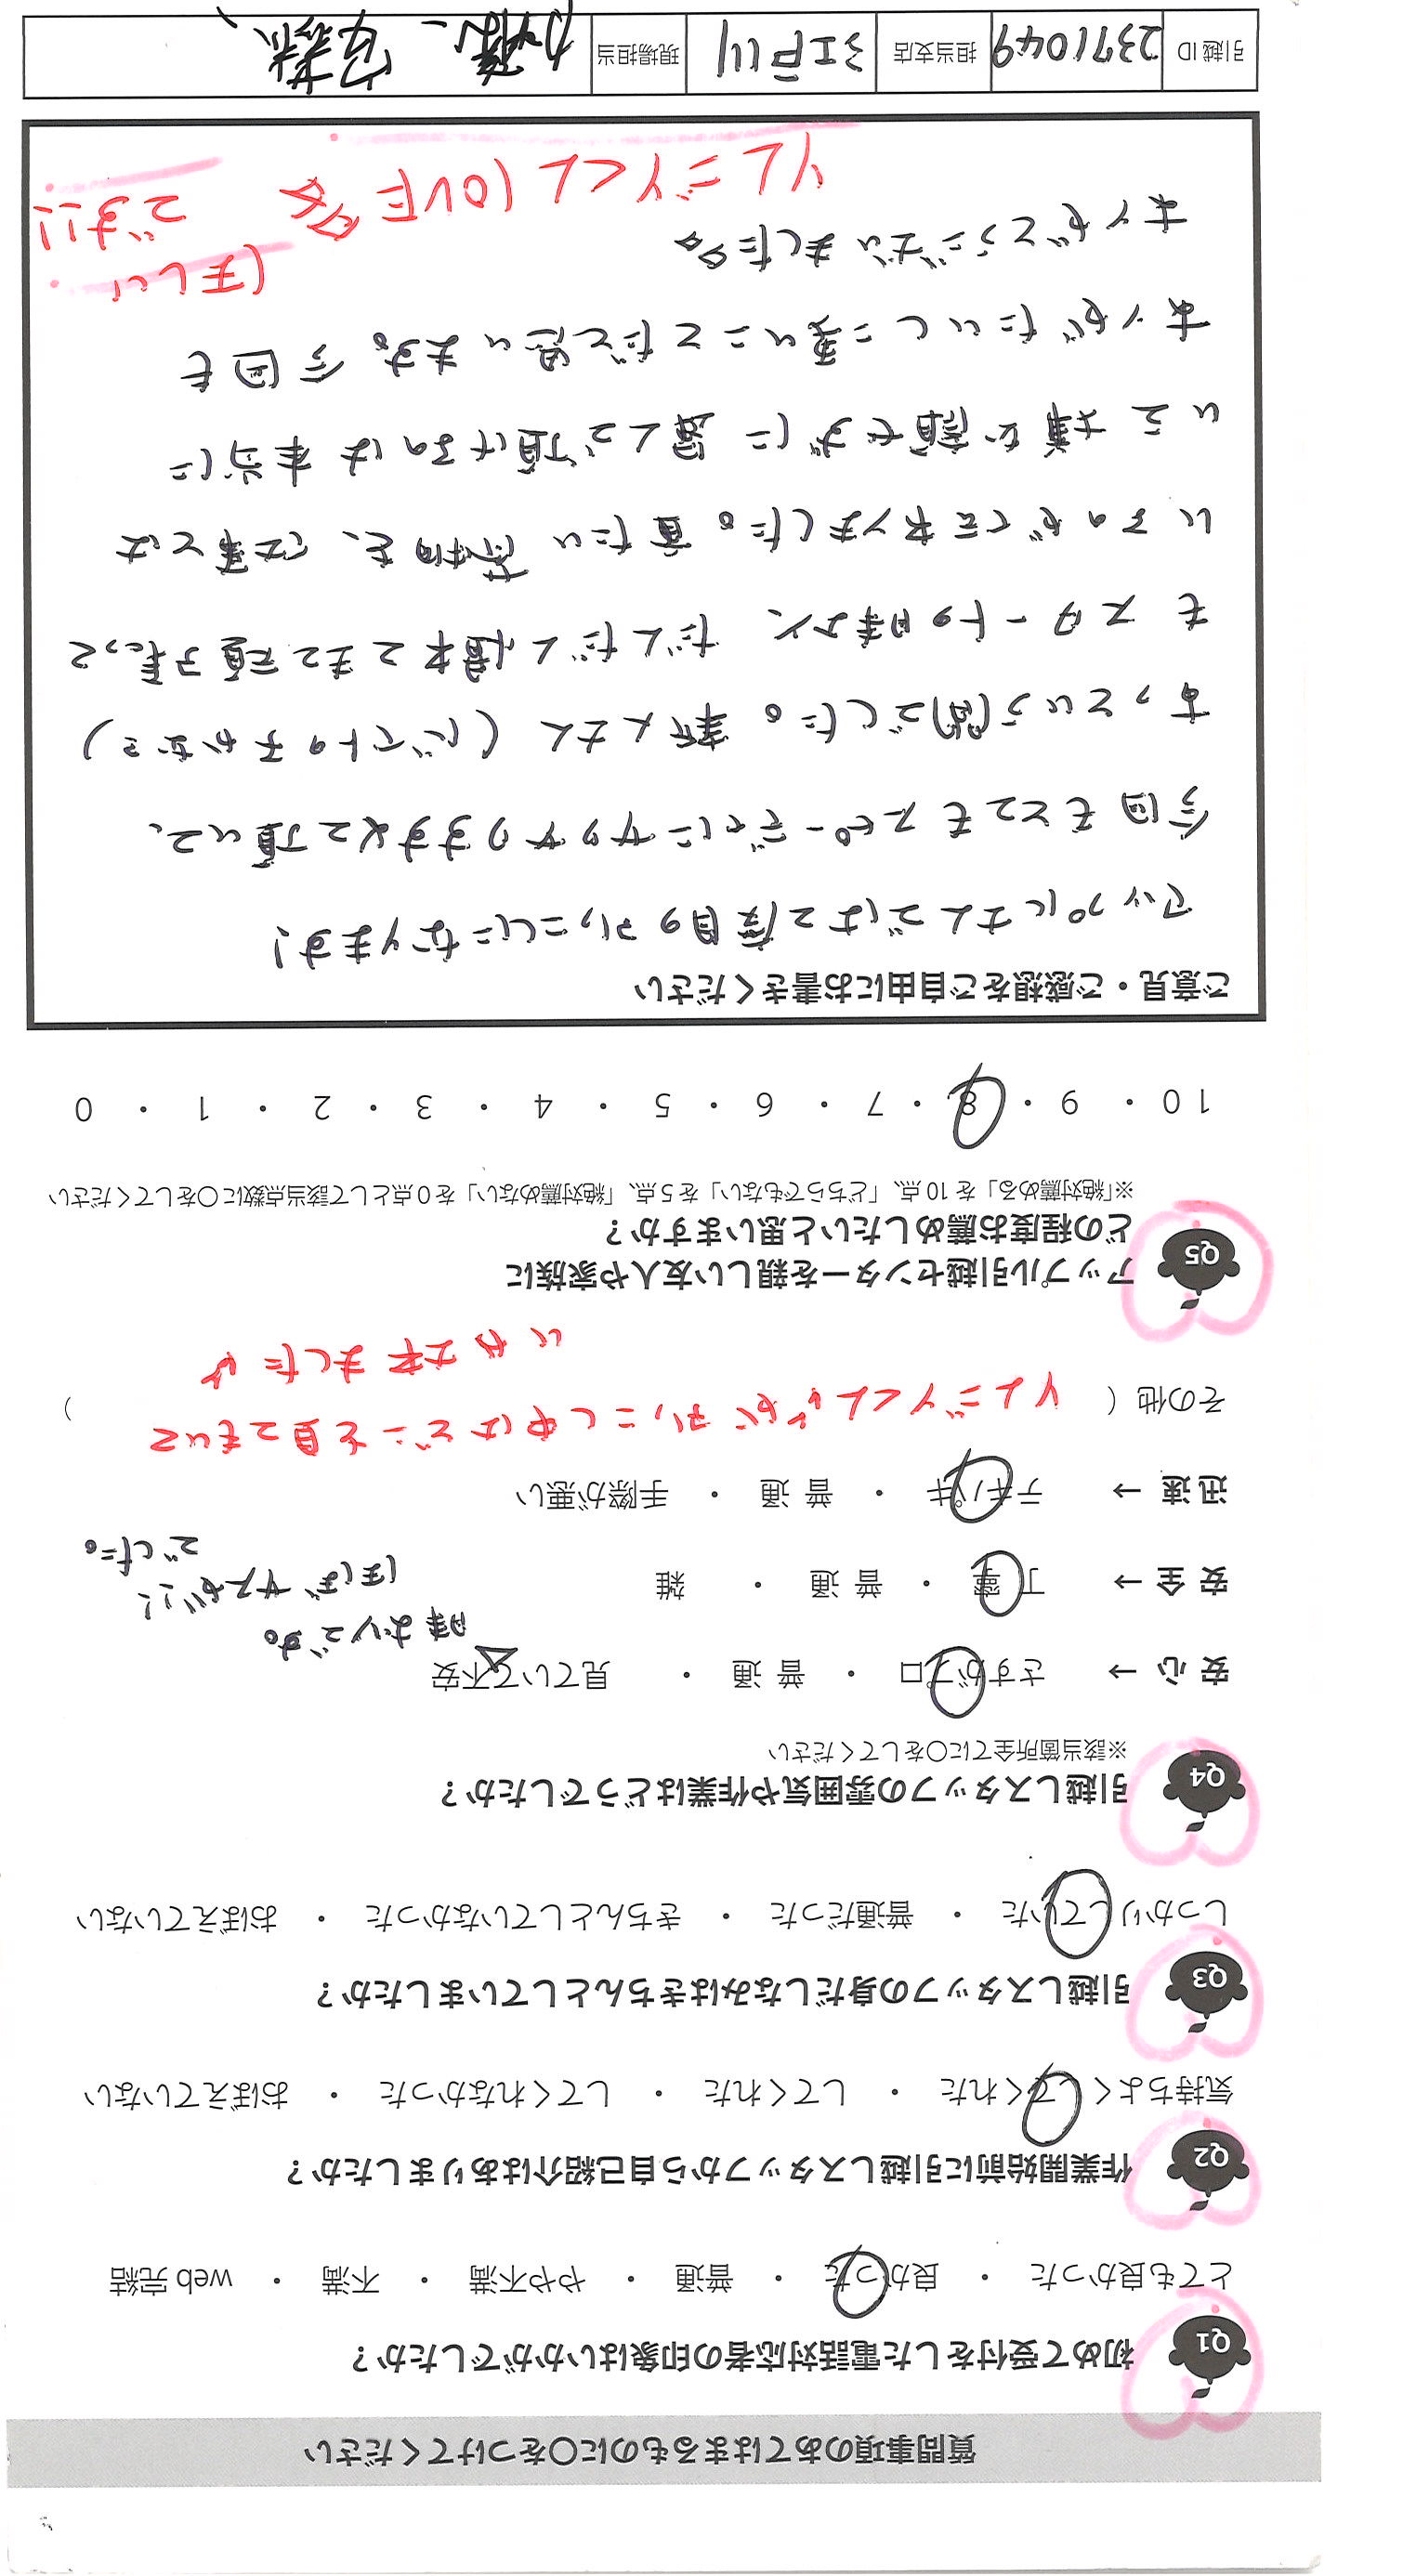 質問事項のあてはまるものに○をつけてください
Q1 初めて受付をした電話対応者の印象はいかがでしたか？
とても良かった ・ 良かった ・ 普通 ・ やや不満 ・ 不満 ・ web 完結
Q2 作業開始前に引越しスタッフから自己紹介はありましたか？
気持ちよくしてくれた ・ してくれた ・ してくれなかった ・ おぼえていない
Q3 引越しスタッフの身だしなみはきちんとしていましたか？
しっかりしていた ・ 普通だった ・ きちんとしていなかった ・ おぼえていない
Q4 引越しスタッフの雰囲気や作業はどうでしたか？
※該当箇所全てに○をしてください
安 心 → さすがプロ ・ 普 通 ・ 見ていて不安
安 全 → 丁 寧 ・ 普 通 ・ 雑
ほぼサスガ!!
でした。
迅 速 → テキパキ ・ 普 通 ・ 手際が悪い
その他（ ひっこし中はどこを見てもいて ）
いやされました
Q5 アップル引越センターを親しい友人や家族に
どの程度お薦めしたいと思いますか？
※「絶対薦める」を 10 点、「どちらでもない」を 5 点、「絶対薦めない」を 0 点として該当点数に○をしてください
10 ・ 9 ・ 8 ・ 7 ・ 6 ・ 5 ・ 4 ・ 3 ・ 2 ・ 1 ・ 0
ご意見・ご感想をご自由にお書きください
アップルさんでは2度目のひっこしになります!
今回もとてもスピーディにサクサクすすめて頂いて、
あっという間でした。新人さん(バイトの子かな?)
もスタートの時より、だんだん慣れてきて頑張って
いるのが伝わりました。重たい荷物を、仕事とは
いえ大事な顔せずに運んで頂けるのは本当に
ありがたいし凄いことだと思います。今回も
ありがとうございました
LOVE です!!
ほしい
引越 ID 2371049 担当支店 江戸川 現場担当 加藤、